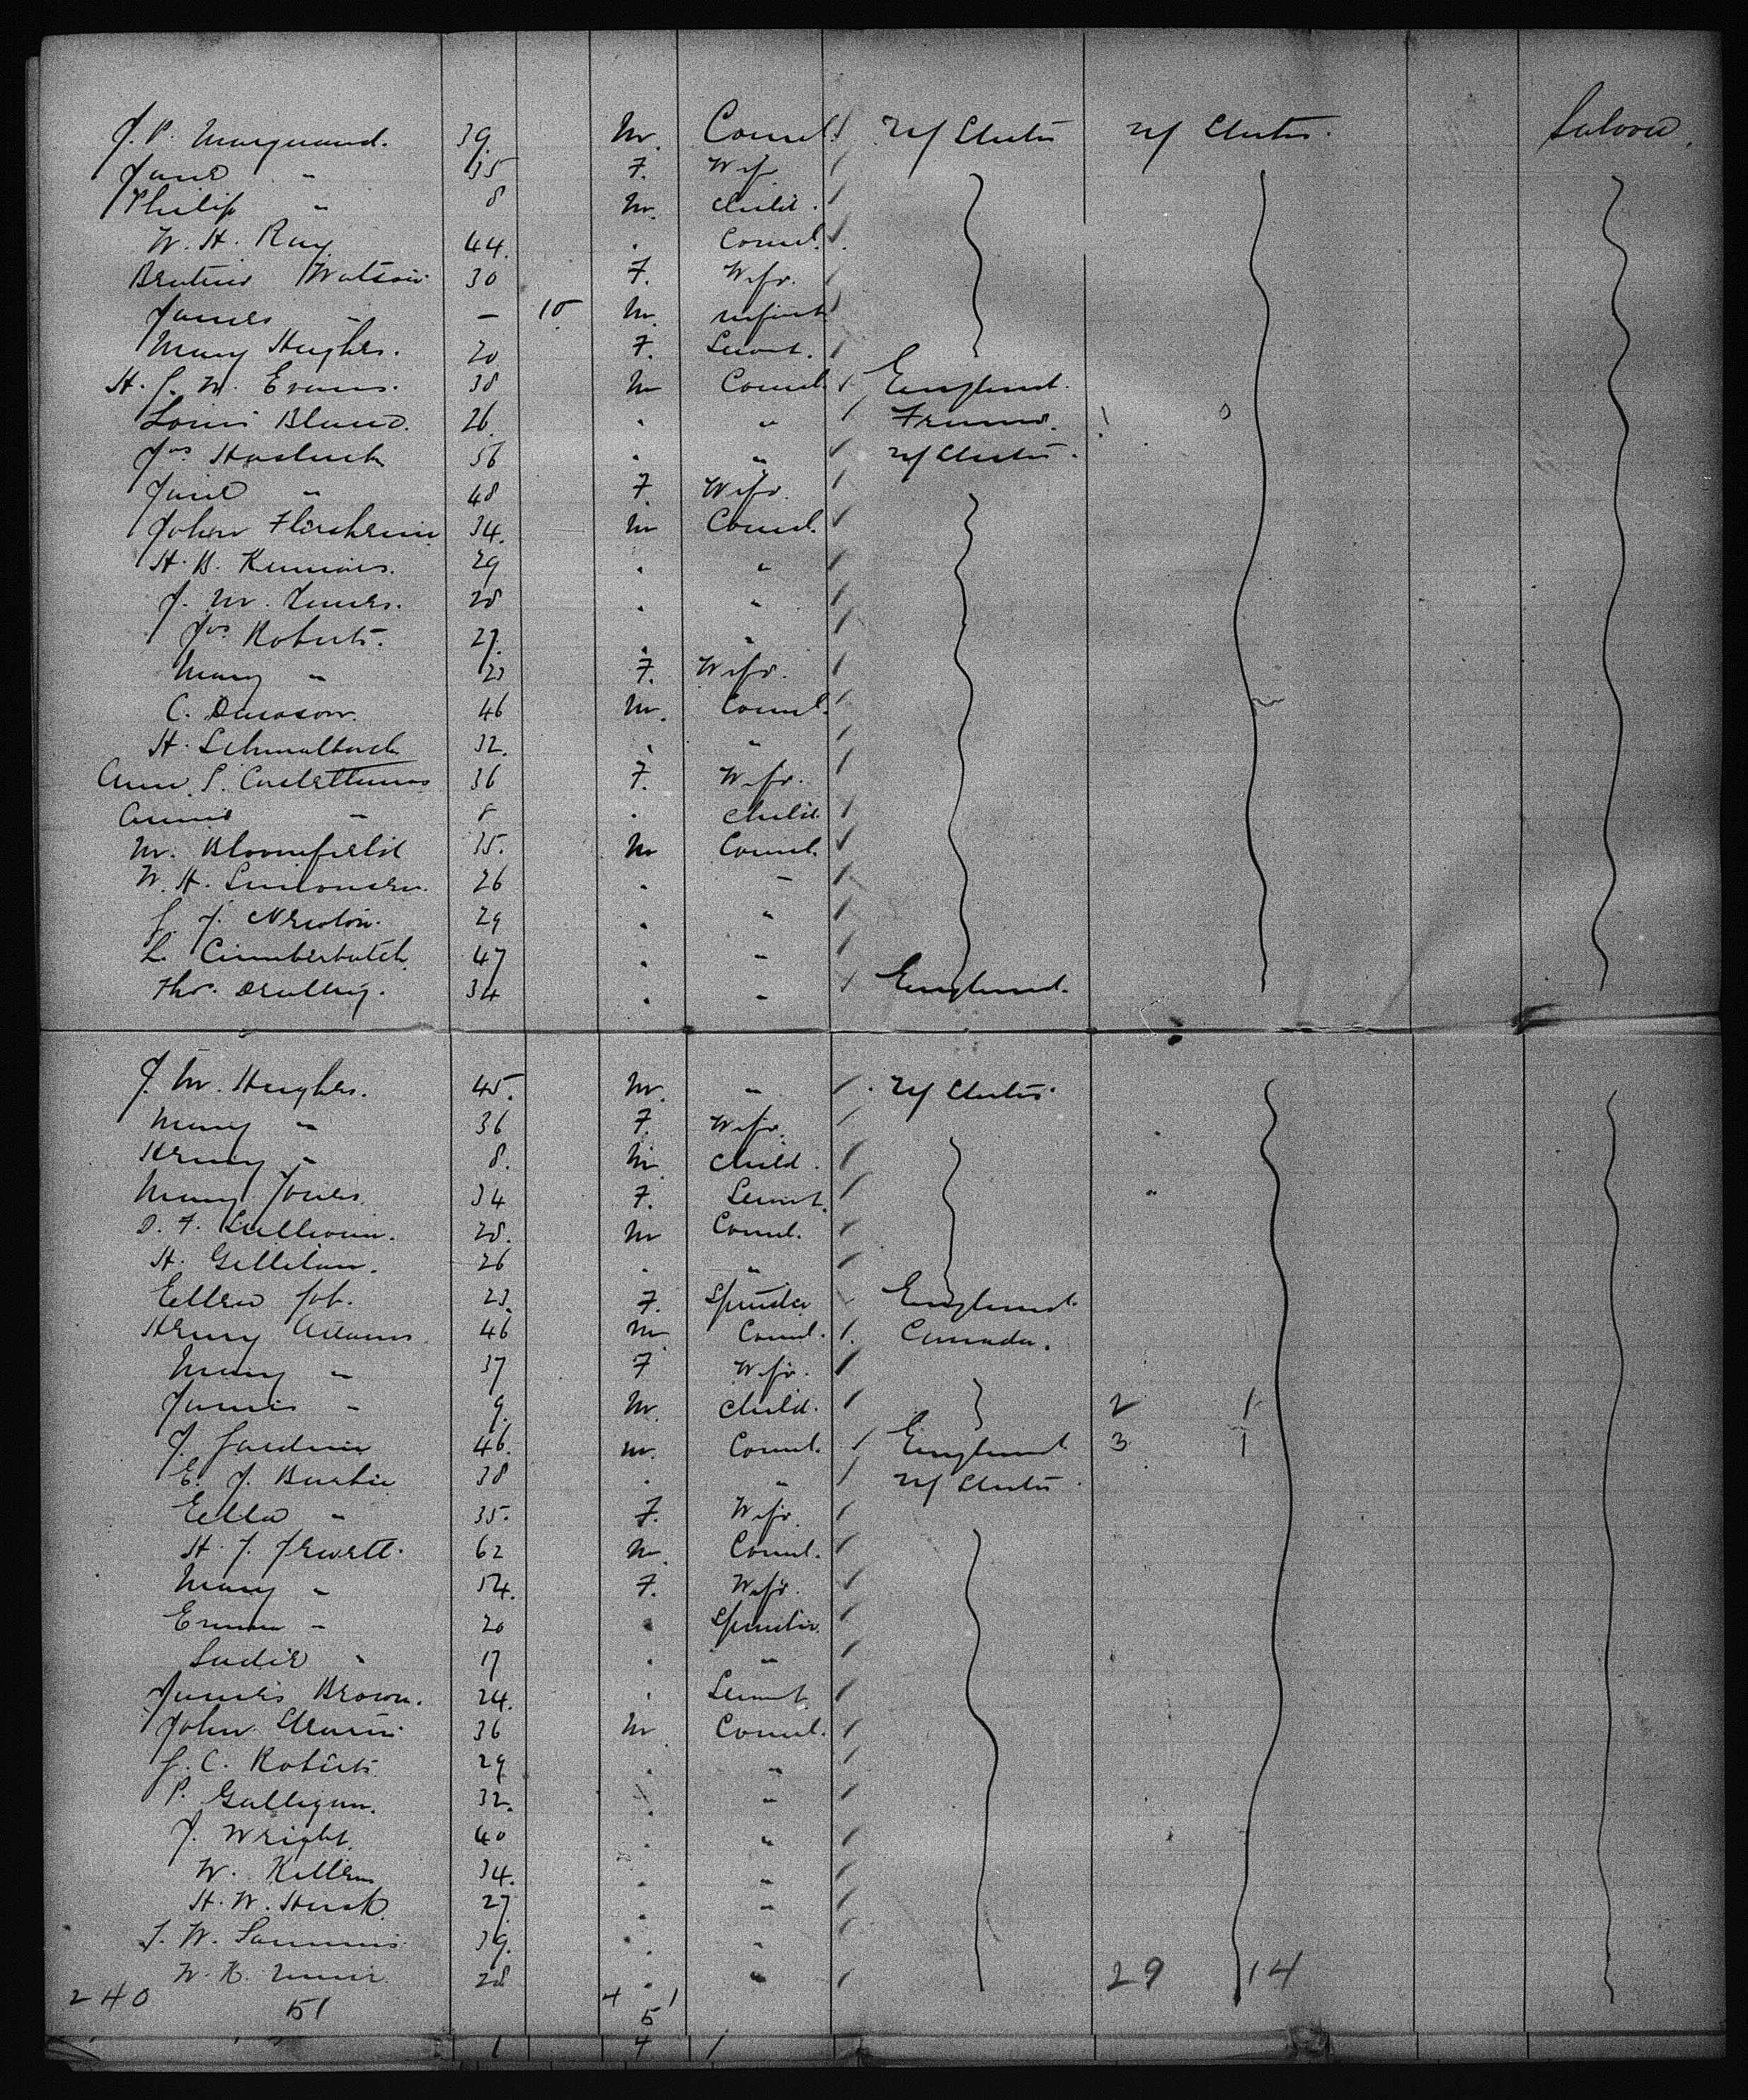 J. P. Marquand. 39. M. Comcl. U/ States U/ States. Saloon.
Jane " 35 F. Wife
Philip " 8 M. Child.
W. H. Ray 44. . Comcl.
Watson 30 F. Wife.
James " — 10. M. infant
Mary Hughes. 20 F. Servnt.
H. S. W. Evans. 38 M Comcl England.
Louis Blanc. 26. . " France.
Jas Hasluck 56 . " U/ States.
Jane " 48 F. Wife.
John 34. M Comcl.
H. B. 29 . "
J. M. Jones. 28 . "
Jos Roberts. 27. . "
Mary " 23 F. Wife.
C. Dawson. 46 M. Comcl.
H. Schmalbach 32. . "
Anne S. 36 F. Wife.
Annie " 8 . Child
M. Bloomfield 35. M Comcl.
W. H. Simonsen. 26 . "
J. Newton. 29 . "
L. Cumberbatch 47 . "
Thos. 34 . " England.
J. M. Hughes. 45. M. " U/ States.
Mary " 36 F. Wife.
Henry " 8. M Child.
Mary Jones. 34 F. Servnt.
D. F. Sullivan. 28. M Comcl.
H. Gillilan. 26 . "
Ellen Job. 23. F. Spinster England.
Henry Adams 46 M Comcl. Canada.
Mary " 37 F Wife.
James " 9. M. Child. 2 1
J. Gardner 46. M. Comcl. England 3 1
E. J. 38 . " U/ States.
Ella " 35. F. Wife.
H. J. Jewett. 62 M. Comcl.
Mary " 54. F. Wife.
Emma " 20 . Spinster.
Sadie " 17 . "
Brown. 24. . Servnt.
John 36 M. Comcl.
J. C. Roberts. 29 . "
P. Galligan. 32. . "
J. Wright. 40 . "
W. Killen 34. . "
H. W. 27. . "
J. W. Sammis. 39. . "
W. K. Muir. 28 . " 29 14
240 51 4 1
5
1 4 1